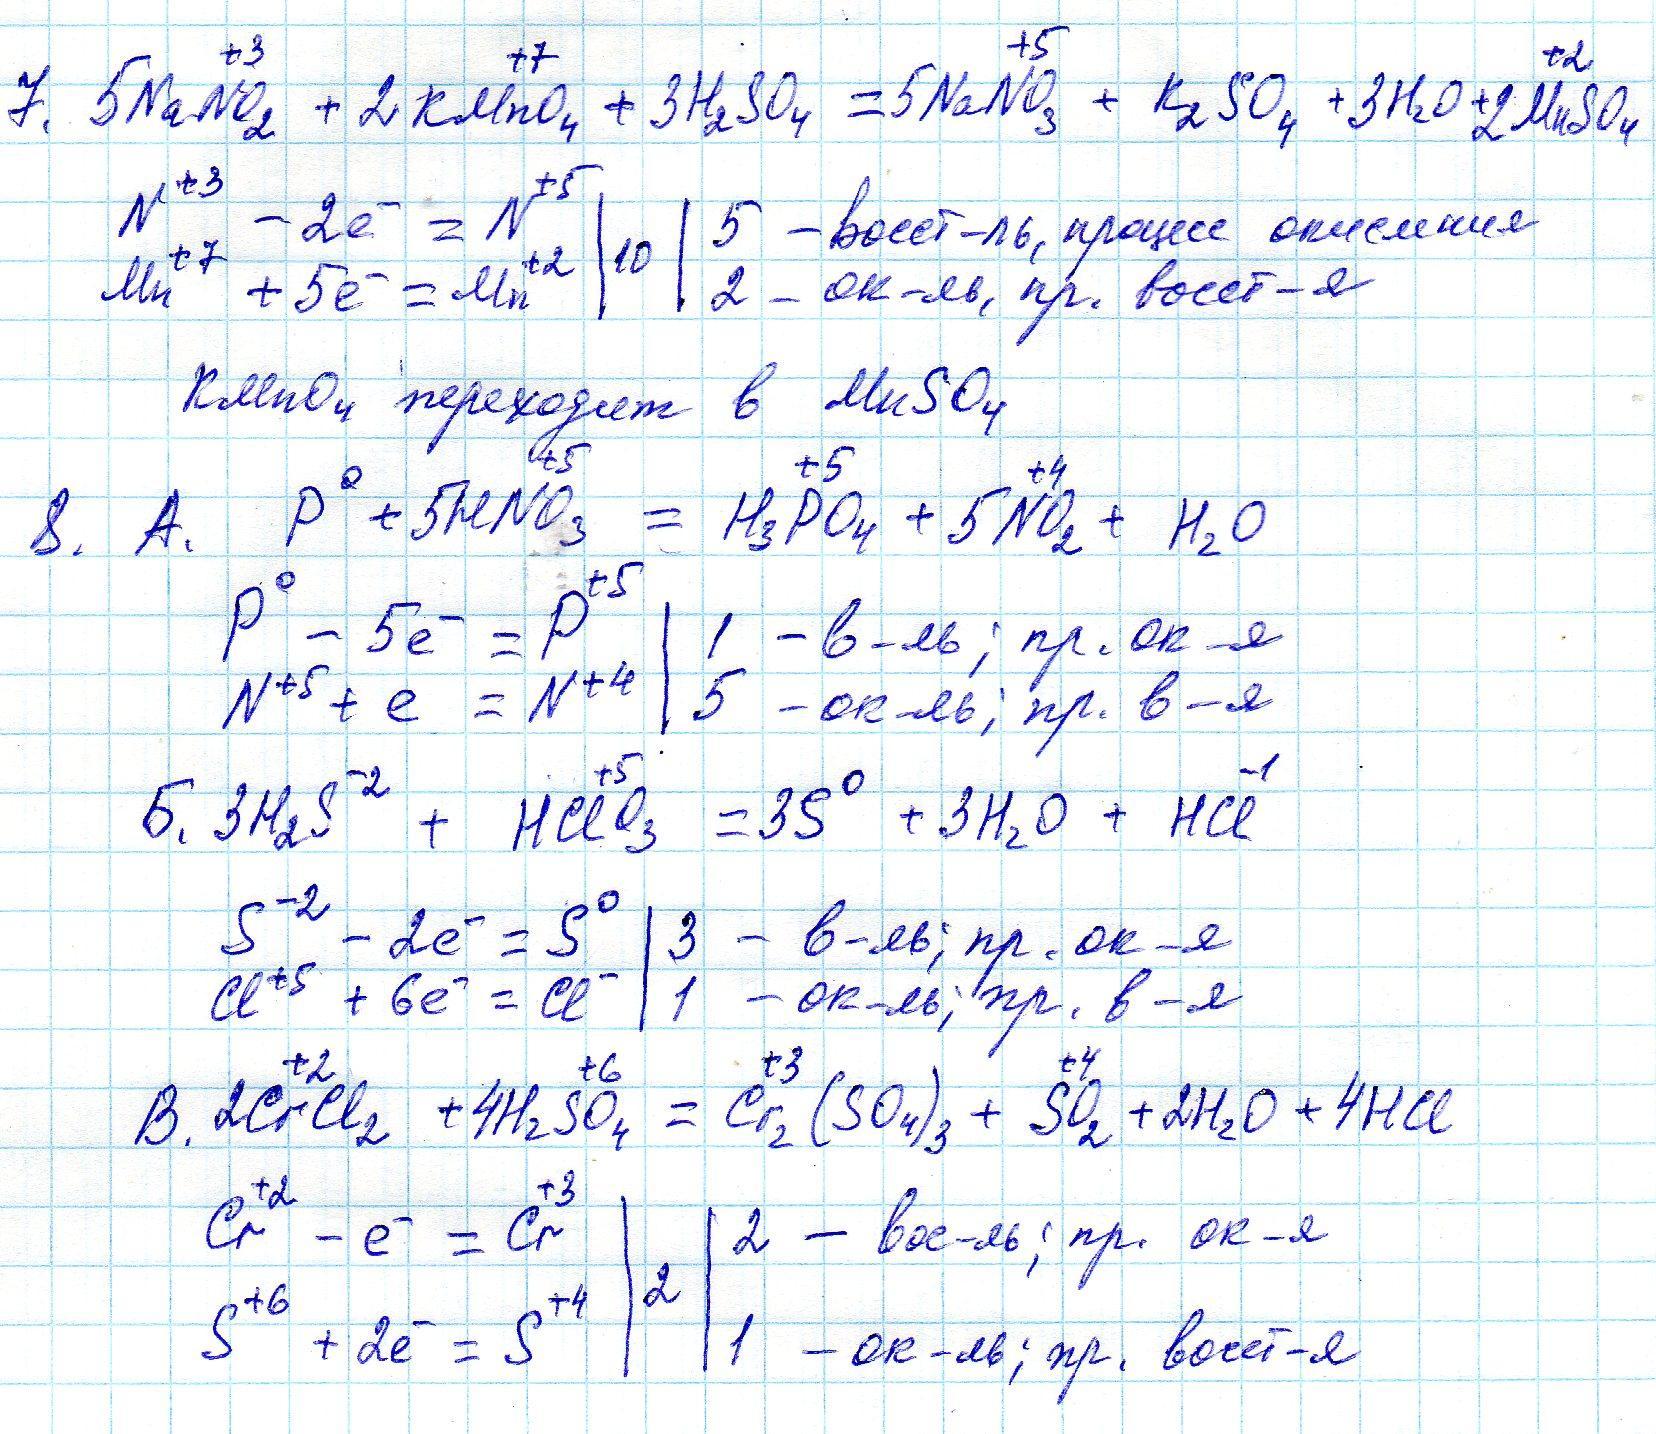 7. 5NaN⁺³O₂ + 2KMn⁺⁷O₄ + 3H₂SO₄ = 5NaN⁺⁵O₃ + K₂SO₄ + 3H₂O + 2Mn⁺²SO₄
N⁺³ – 2e⁻ = N⁺⁵ | 10 | 5 – восст-ль, процесс окисления
Mn⁺⁷ + 5e⁻ = Mn⁺² | 10 | 2 – ок-ль, пр. восст-я
KMnO₄ переходит в MnSO₄
8. А. P⁰ + 5HN⁺⁵O₃ = H₃P⁺⁵O₄ + 5N⁺⁴O₂ + H₂O
P⁰ – 5e⁻ = P⁺⁵ | 1 – в-ль; пр. ок-я
N⁺⁵ + e = N⁺⁴ | 5 – ок-ль; пр. в-я
Б. 3H₂S⁻² + HCl⁺⁵O₃ = 3S⁰ + 3H₂O + HCl⁻¹
S⁻² – 2e⁻ = S⁰ | 3 – в-ль; пр. ок-я
Cl⁺⁵ + 6e⁻ = Cl⁻ | 1 – ок-ль; пр. в-я
В. 2Cr⁺²Cl₂ + 4H₂S⁺⁶O₄ = Cr⁺³₂(SO₄)₃ + S⁺⁴O₂ + 2H₂O + 4HCl
Cr⁺² – e⁻ = Cr⁺³ | 2 | 2 – вос-ль; пр. ок-я
S⁺⁶ + 2e⁻ = S⁺⁴ | 2 | 1 – ок-ль; пр. восст-я